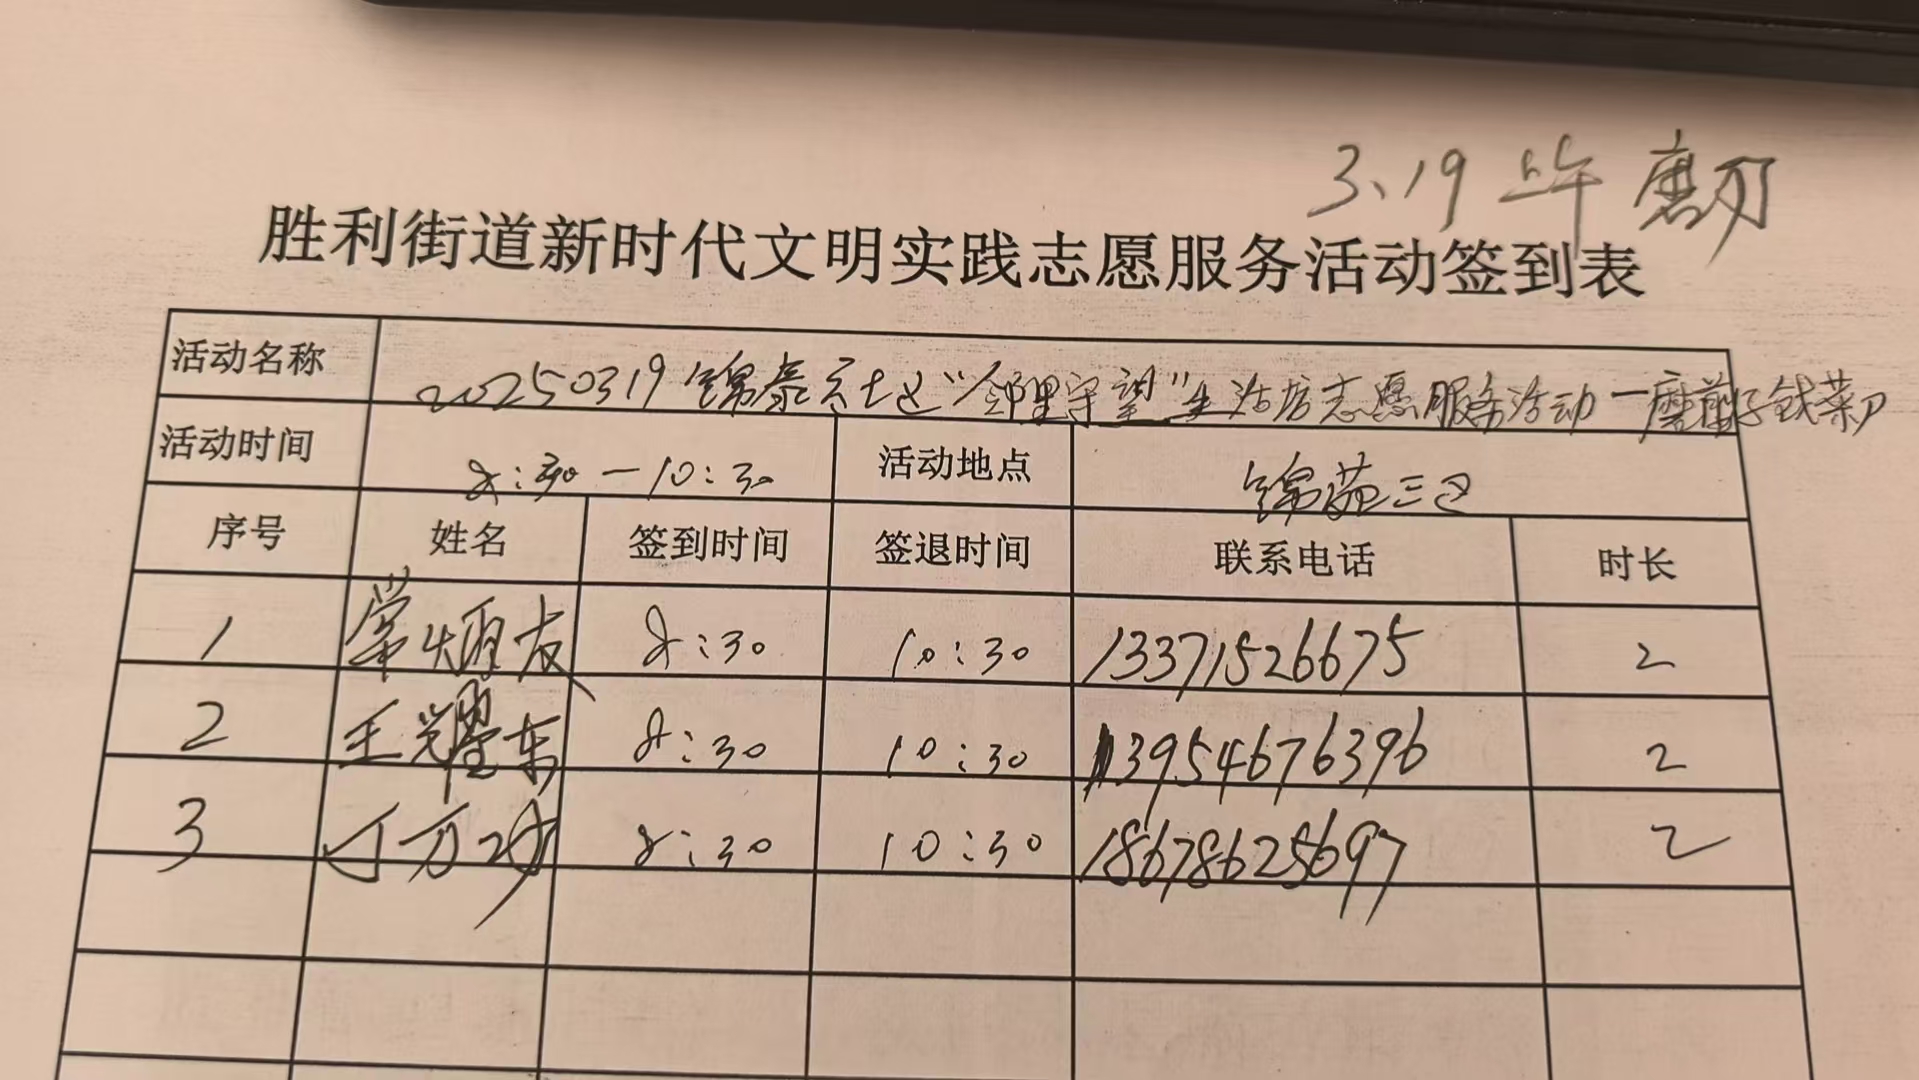 3、19 上午 磨刀
胜利街道新时代文明实践志愿服务活动签到表
活动名称 20250319锦泰社区“邻里守望”生活志愿服务活动—磨剪子戗菜刀
活动时间 8:30—10:30 活动地点 锦苑三区
序号 姓名 签到时间 签退时间 联系电话 时长
1 友 8:30 10:30 13371526675 2
2 王耀东 8:30 10:30 13954676396 2
3 丁万 8:30 10:30 18678625697 2